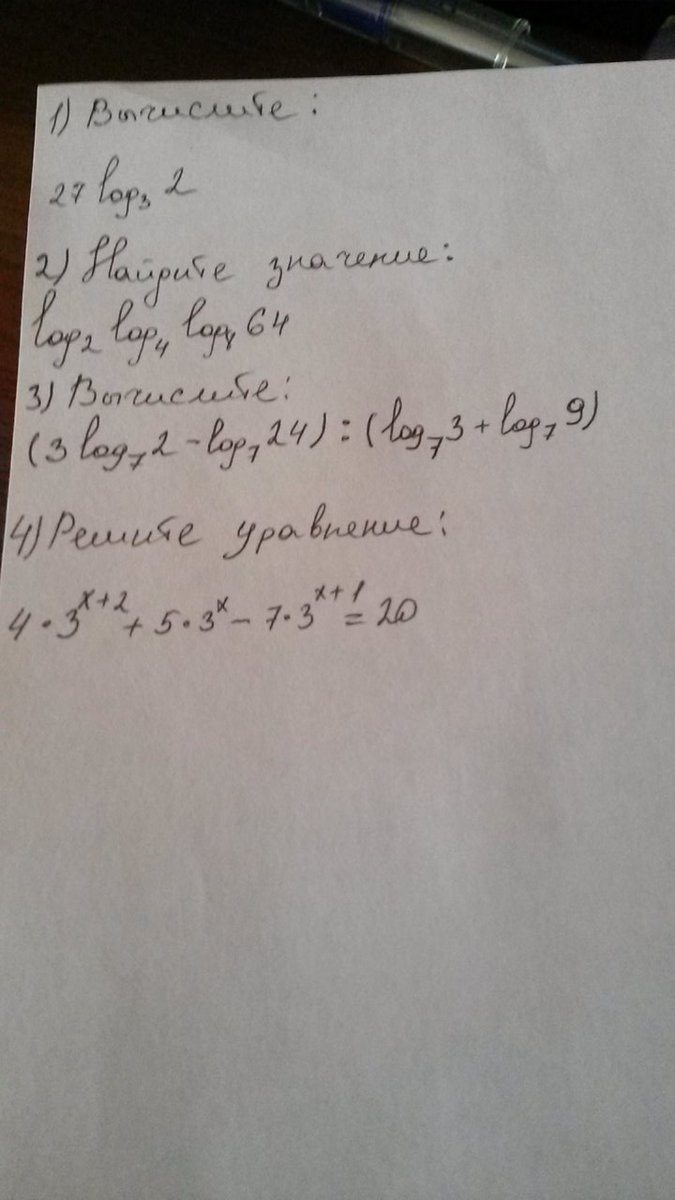 1) Вычислите:
27 log₃ 2
2) Найдите значение:
log₂ log₄ log 64
3) Вычислите:
(3 log₇ 2 - log₇ 24) : (log₇ 3 + log₇ 9)
4) Решите уравнение:
4 · 3ˣ⁺² + 5 · 3ˣ - 7 · 3ˣ⁺¹ = 20